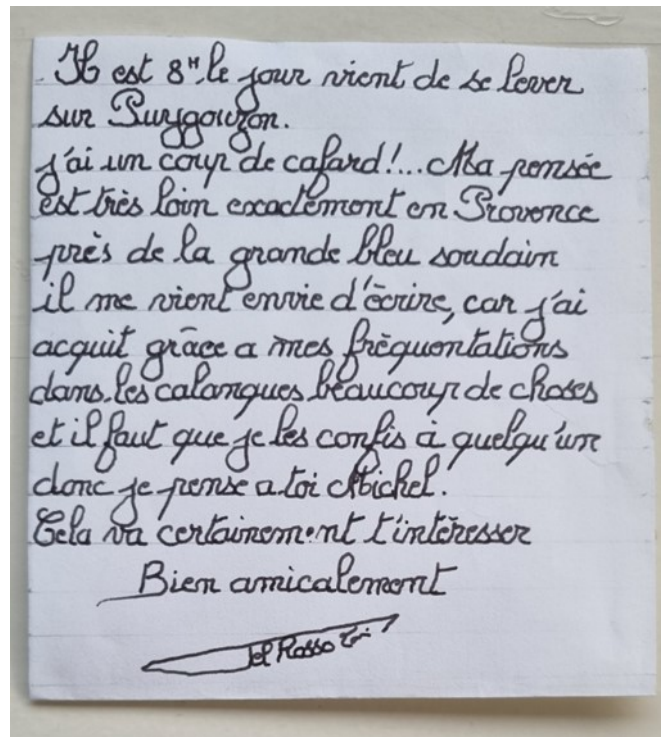 Il est 8H, le jour vient de se lever
sur Puygouzon.
j'ai un coup de cafard!... Ma pensée
est très loin exactement en Provence
près de la grande bleu soudain
il me vient envie d'écrire, car j'ai
acquit grâce a mes fréquentations
dans les calanques beaucoup de choses
et il faut que je les confis à quelqu'un
donc je pense a toi Michel.
Cela va certainement t'intéresser
Bien amicalement
Rosso